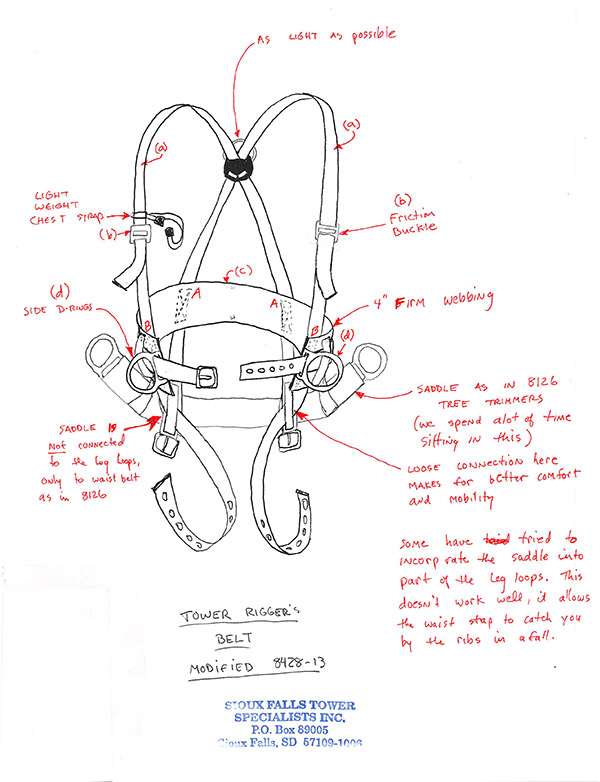 AS LIGHT AS possible
(a)
(a)
LIGHT
WEIGHT
CHEST STRAP
(b)
(b)
Friction
Buckle
(c)
A
A
(d)
SIDE D-RINGS
4" FIRM WEBBING
B
B
(d)
SADDLE AS IN 8126
TREE TRIMMERS
(we spend alot of time
sitting in this)
SADDLE IS
Not connected
to the leg loops,
only to waist belt
as in 8126
LOOSE CONNECTION here
MAKES for better comfort
and mobility
Some have tried to
incorp rate the saddle into
part of the leg loops. This
doesn't work well, it allows
the waist stap to catch you
by the ribs in a fall.
TOWER RIGGER'S
BELT
MODIFIED 8428-13
SIOUX FALLS TOWER
SPECIALISTS INC.
P.O. Box 89005
Sioux Falls, SD 57109-1006